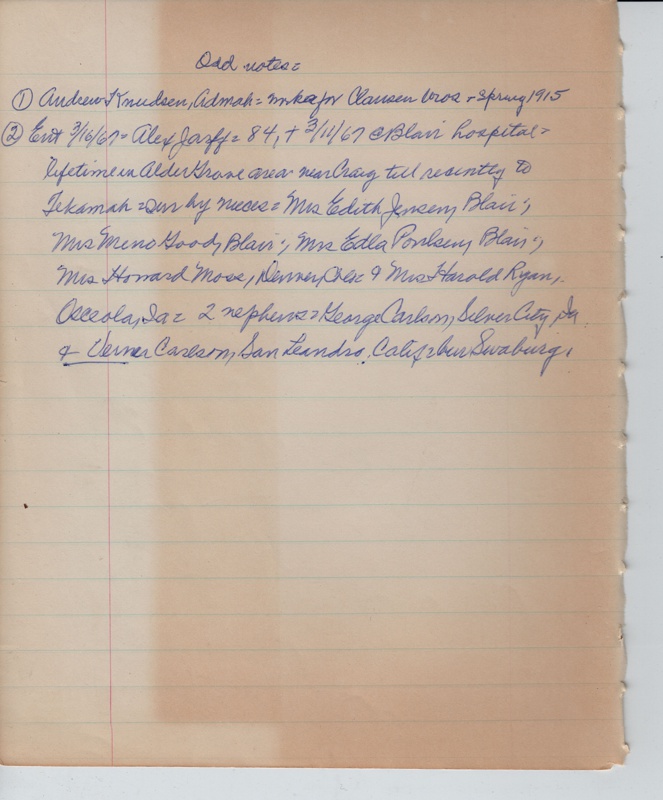 Odd notes =
① Andrew Knudsen, Admah = wks for Clausen bros - Spring 1915
② Ent 3/16/67 = Alex Jarff = 84, + 3/11/67 @ Blair hospital =
lifetime in Alder Grove area near Craig till recently to
Tekamah = sur by nieces = Mrs Edith Jensen, Blair;
Mrs Meno Good, Blair; Mrs Edla Poulsen, Blair;
Mrs Howard Moss, Denver, & Mrs Harold Ryan,
Osceola, Ia = 2 nephews = George Carlson, Silver City, Ia
& Verner Carlson, San Leandro, Calif = bur Swaburg.